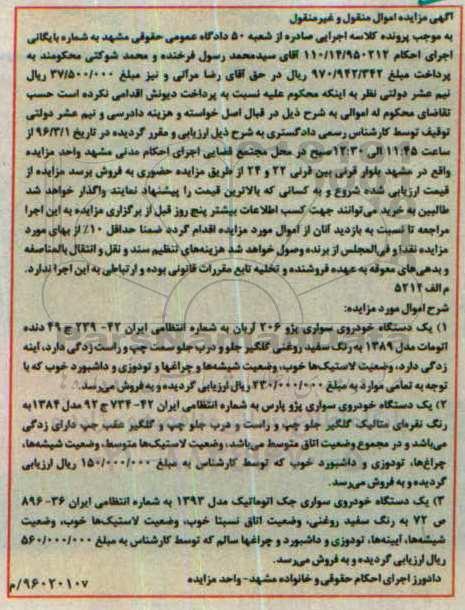 آگهی مزایده اموال منقول و غیرمنقول
به موجب پرونده کلاسه اجرایی صادره از شعبه ۵۰ دادگاه عمومی حقوقی مشهد به شماره بایگانی
اجرای احکام ۱۱۰/۱۴/۹۵۰۲۱۲ آقای سیدمحمد رسول فرخنده و محمد شوکتی محکومند به
پرداخت مبلغ ۹۷۰/۹۴۲/۳۴۲ ریال در حق آقای رضا مرآتی و نیز مبلغ ۳۷/۵۰۰/۰۰۰ ریال
نیم عشر دولتی نظر به اینکه محکوم علیه نسبت به پرداخت دیونش اقدامی نکرده است حسب
تقاضای محکوم له اموالی به شرح ذیل در قبال اصل خواسته و هزینه دادرسی و نیم عشر دولتی
توقیف توسط کارشناس رسمی دادگستری به شرح ذیل ارزیابی و مقرر گردیده در تاریخ ۹۶/۳/۱ از
ساعت ۱۱:۴۵ الی ۱۲:۳۰صبح در محل مجتمع قضایی اجرای احکام مدنی مشهد واحد مزایده
واقع در مشهد بلوار قرنی بین قرنی ۲۲ و ۲۴ از طریق مزایده حضوری به فروش برسد مزایده از
قیمت ارزیابی شده شروع و به کسانی که بالاترین قیمت را پیشنهاد نمایند واگذار خواهد شد
طالبین به خرید می‌توانند جهت کسب اطلاعات بیشتر پنج روز قبل از برگزاری مزایده به این اجرا
مراجعه تا نسبت به بازدید آنان از اموال مورد مزایده اقدام گردد ضمنا حداقل ۱۰٪ از بهای مورد
مزایده نقدا و فی‌المجلس از برنده وصول خواهد شد هزینه‌های تنظیم سند و نقل و انتقال بالمناصفه
و بدهی‌های معوقه به عهده فروشنده و تخلیه تابع مقررات قانونی بوده و ارتباطی به این اجرا ندارد.
م الف ۵۲۱۲
شرح اموال مورد مزایده:
۱) یک دستگاه خودروی سواری پژو ۲۰۶ آریان به شماره انتظامی ایران ۴۲- ۲۳۹ ج ۴۹ دنده
اتومات مدل ۱۳۸۹ به رنگ سفید روغنی گلگیر جلو و درب جلو سمت چپ و راست زدگی دارد، آینه
زدگی دارد، وضعیت لاستیک‌ها خوب، وضعیت شیشه‌ها و چراغها و تودوزی و داشبورد خوب که با
توجه به تمامی موارد به مبلغ ۲۳۰/۰۰۰/۰۰۰ ریال ارزیابی گردیده و به فروش می‌رسد.
۲) یک دستگاه خودروی سواری پژو پارس به شماره انتظامی ایران ۴۲- ۷۳۴ ج ۹۲ مدل ۱۳۸۴ به
رنگ نقره‌ای متالیک گلگیر جلو چپ و راست و درب جلو چپ و گلگیر عقب چپ دارای زدگی
می‌باشد و در مجموع وضعیت اتاق متوسط می‌باشد، وضعیت لاستیک‌ها متوسط، وضعیت شیشه‌ها،
چراغ‌ها، تودوزی و داشبورد خوب که توسط کارشناس به مبلغ ۱۵۰/۰۰۰/۰۰۰ ریال ارزیابی
گردیده و به فروش می‌رسد.
۳) یک دستگاه خودروی سواری جک اتوماتیک مدل ۱۳۹۳ به شماره انتظامی ایران ۳۶- ۸۹۶
ص ۷۲ به رنگ سفید روغنی، وضعیت اتاق نسبتا خوب، وضعیت لاستیک‌ها خوب، وضعیت
شیشه‌ها، آیینه‌ها، تودوزی و داشبورد و چراغها سالم که توسط کارشناس به مبلغ ۵۶۰/۰۰۰/۰۰۰
ریال ارزیابی گردیده و به فروش می‌رسد.
دادورز اجرای احکام حقوقی و خانواده مشهد- واحد مزایده
۹۶۰۲۰۱۰۷/م